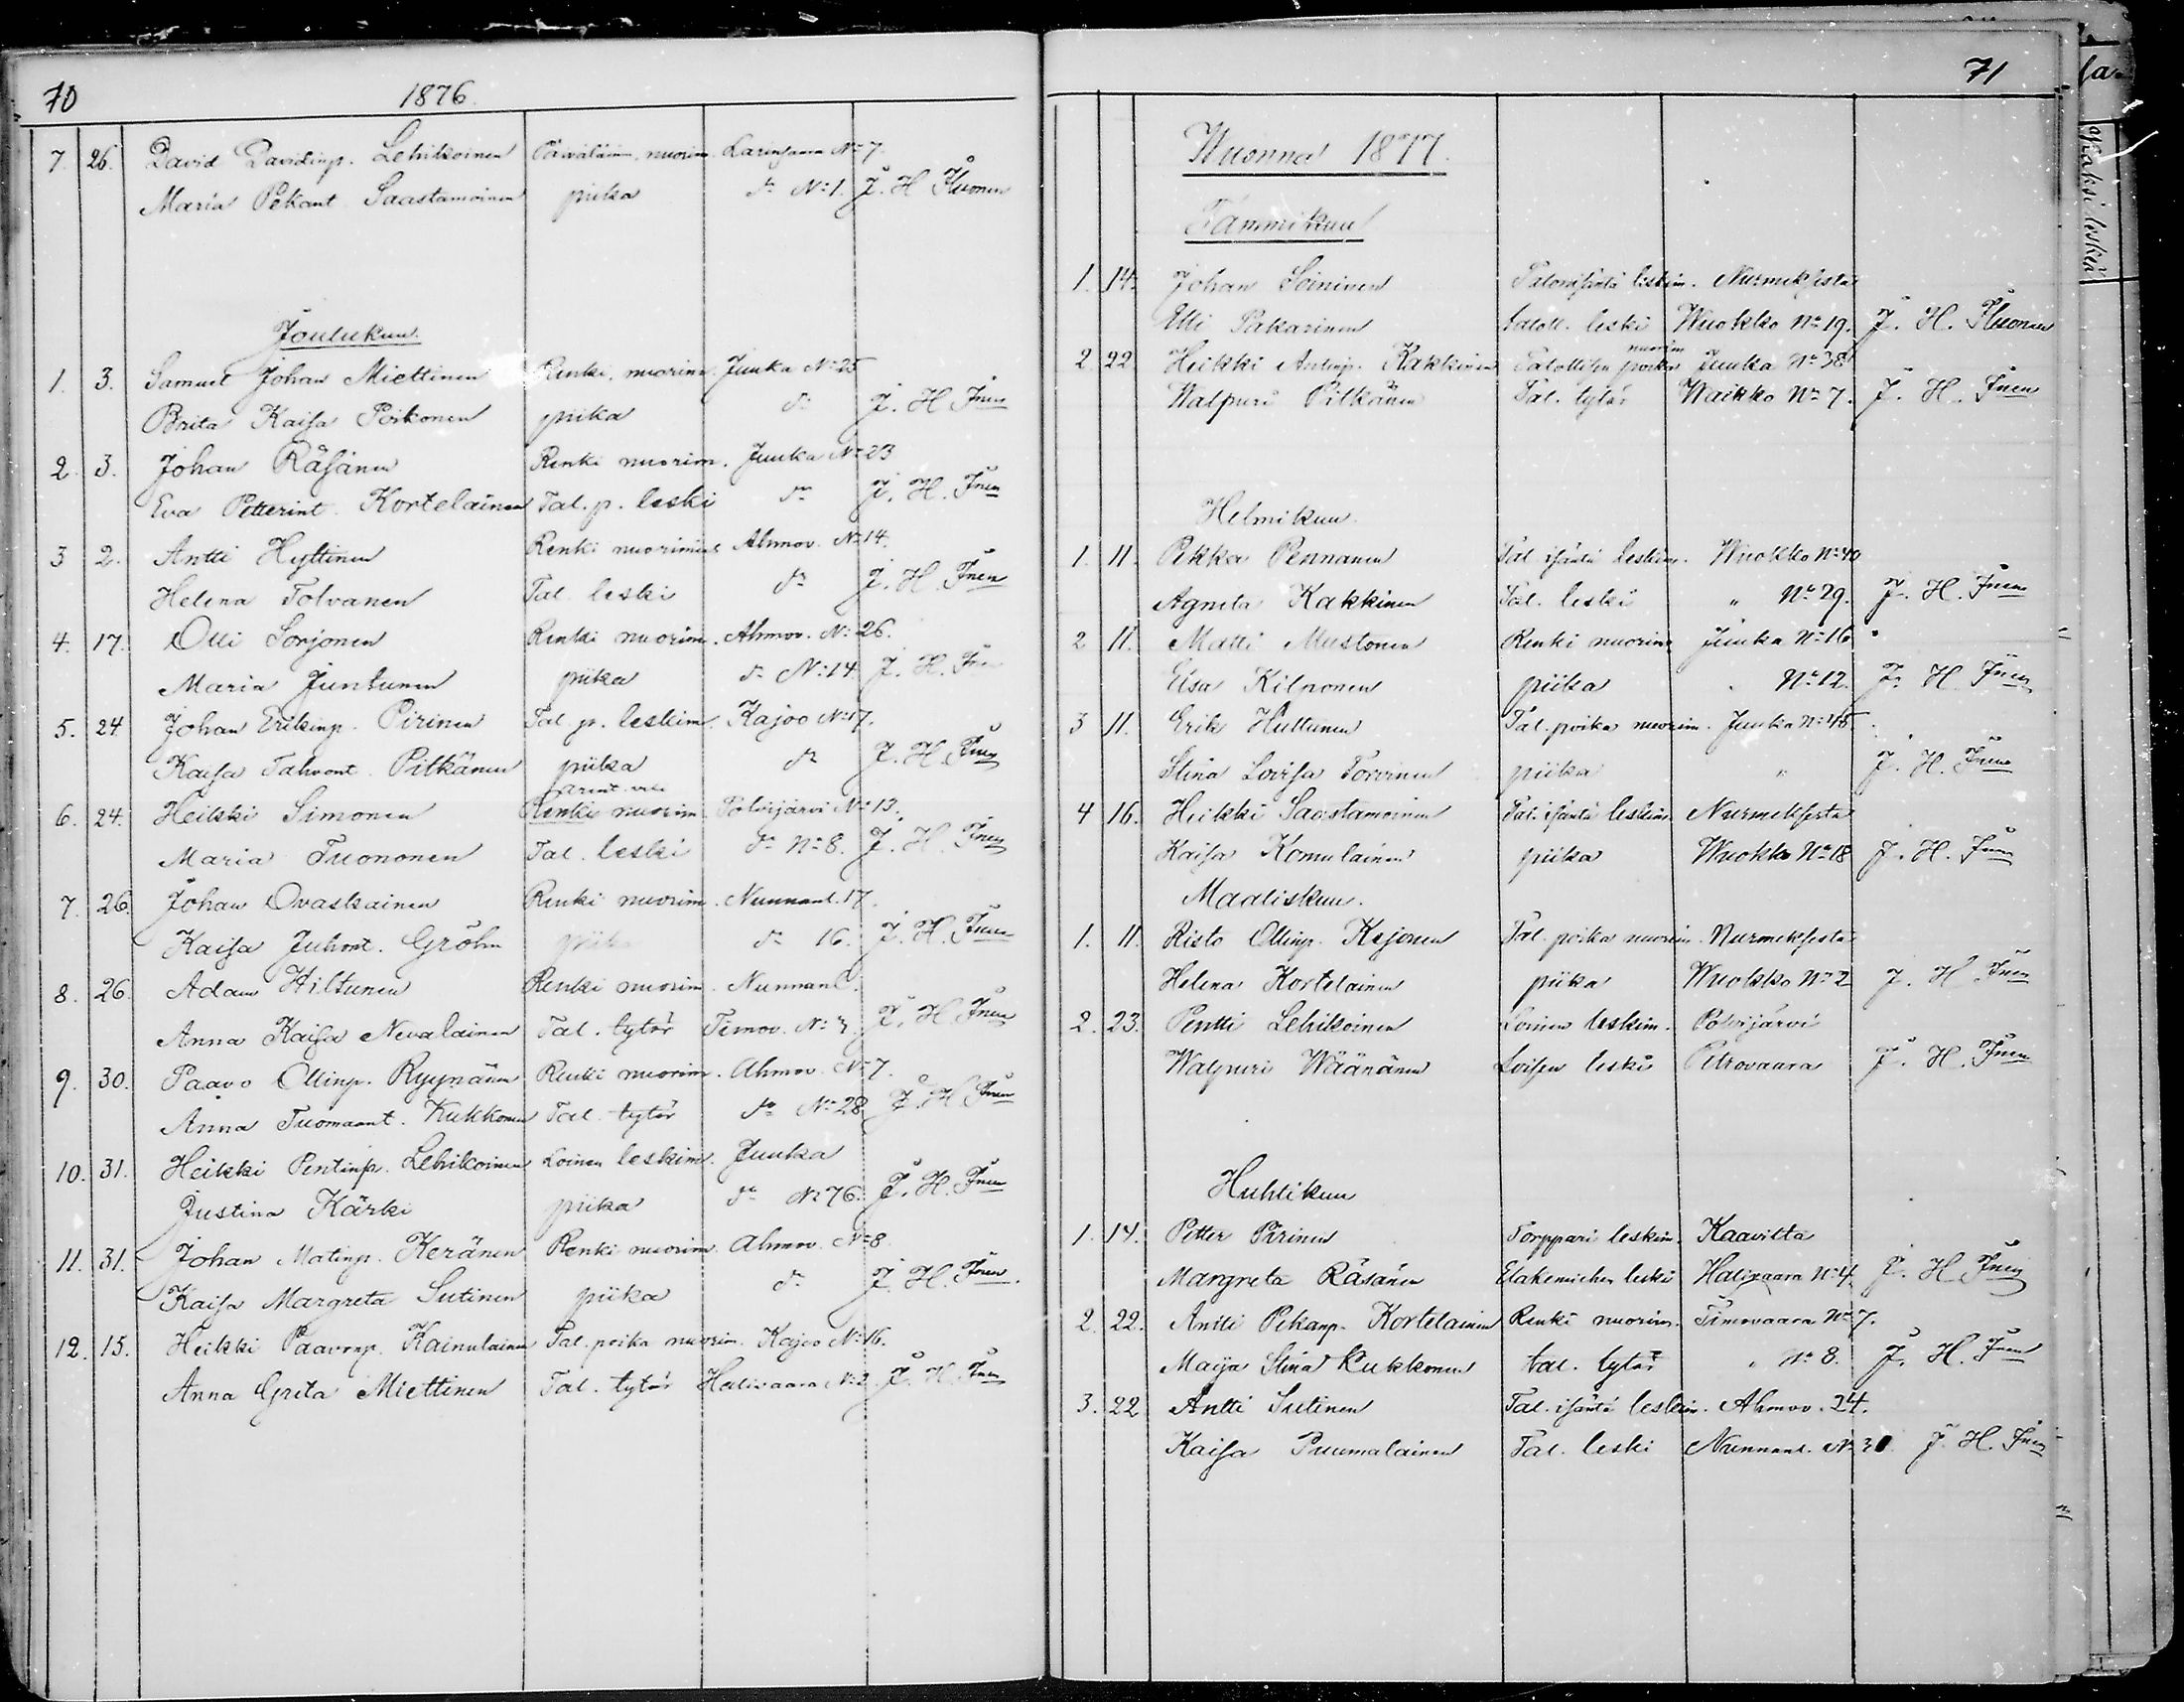 70
1876.
7. 26. David Davidinp. Lehikoinen Päiväläin. nuorim. Larinsaari No 7.
Maria Pekant. Saastamoinen piika do No 1. J. H. Ihonen
Joulukuu.
1. 3. Samuel Johan Miettinen Renki nuorim. Juuka No 25
Brita Kaisa Poikonen piika do J. H. Inen
2. 3. Johan Räsänen Renki nuorim. Juuka No 23
Eva Petterint. Kortelainen Tal. p. leski do J. H. Inen
3 2. Antti Hyttinen Renki nuorimies Ahmov. No 14.
Helena Tolvanen Tal. leski do J. H. Inen
4. 17. Olli Sorjonen Renki nuorim. Ahmov. No 26.
Maria Juntunen piika do No 14 J. H. Inen
5. 24 Johan Erikinp. Pirinen Tal. p. leskim. Kajoo No 17.
Kaisa Tahvont. Pitkänen piika do J. H. Inen
6. 24. Heikki Simonen Renki nuorim. Polvijärvi No 13.
Maria Tuononen Tal. leski do No 8. J. H. Inen
7. 26. Johan Ovaskainen Renki nuorim. Nunnanl. 17.
Kaisa Juhont. Gröhn piika do 16. J. H. Inen
8. 26. Adam Hiltunen Renki nuorim. Nunnanl.
Anna Kaisa Nevalainen Tal. tytär Timov. No 3. J. H. Inen
9. 30. Paavo Ollinp. Ryynänen Renki nuorim. Ahmov. No 7.
Anna Tuomaant. Kukkonen Tal. tytär do No 28 J. H. Inen
10. 31. Heikki Pentinp. Lehikoinen Loinen leskim. Juuka
Justina Kärki piika do No 76. J. H. Inen
11. 31. Johan Matinp. Keränen Renki nuorim. Ahmov. No 8.
Kaisa Margreta Sutinen piika do J. H. Inen.
12. 15. Heikki Paavonp. Kainulainen Tal. poika nuorim. Kajoo No 16.
Anna Greta Miettinen Tal. tytär Halivaara No 2 J. H. Inen
71
Wuonna 1877.
Tammikuu
1. 14. Johan Soininen Talonisäntä leskim. Nurmeksesta
Elli Pakarinen taloll. leski Wuokko No 19. J. H. Ihonen
nuorim
2 22 Heikki Antinp. Kakkinen Talollisen poika Juuka No 38
Walpuri Pitkänen Tal. tytär Waikko No 7. J. H. Inen
Helmikuu.
1. 11. Pekka Pennanen Tal. isäntä leskim. Wuokko No 40
Agneta Kakkinen Tal. leski " No 29. J. H. Inen
2 11. Matti Mustonen Renki nuorim Juuka No 16
Elsa Kilponen piika " No 12. J. H. Inen
3 11. Erik Huttunen Tal. poika nuorim. Juuka No 45
Stina Lovisa Torvinen piika " J. H. Inen
4 16. Heikki Saastamoinen Tal. isäntä leskim. Nurmeksesta
Kaisa Komulainen piika Wuokko No 18 J. H. Inen
Maaliskuu.
1. 11. Risto Ollinp. Kejonen Tal. poika nuorim. Nurmeksesta
Helena Kortelainen piika Wuokko No 2 J. H. Inen
2. 23. Pentti Lehikoinen Loinen leskim. Polvijärvi
Walpuri Wäänänen Loisen leski Petrovaara J. H. Inen
Huhtikuu
1. 14. Petter Pirinen Torppari leskim. Kaavilta
Margreta Räsänen Eläkemiehen leski Halivaara No 4 J. H. Inen
2. 22. Antti Pekanp. Kortelainen Renki nuorim. Timovaara No 7.
Maija Stina Kukkonen tal. tytär " No 8. J. H. Inen
3. 22 Antti Sutinen Tal. isäntä leskim. Ahmov. 24.
Kaisa Puumalainen Tal. leski Nunnanl. No 30. J. H. Inen